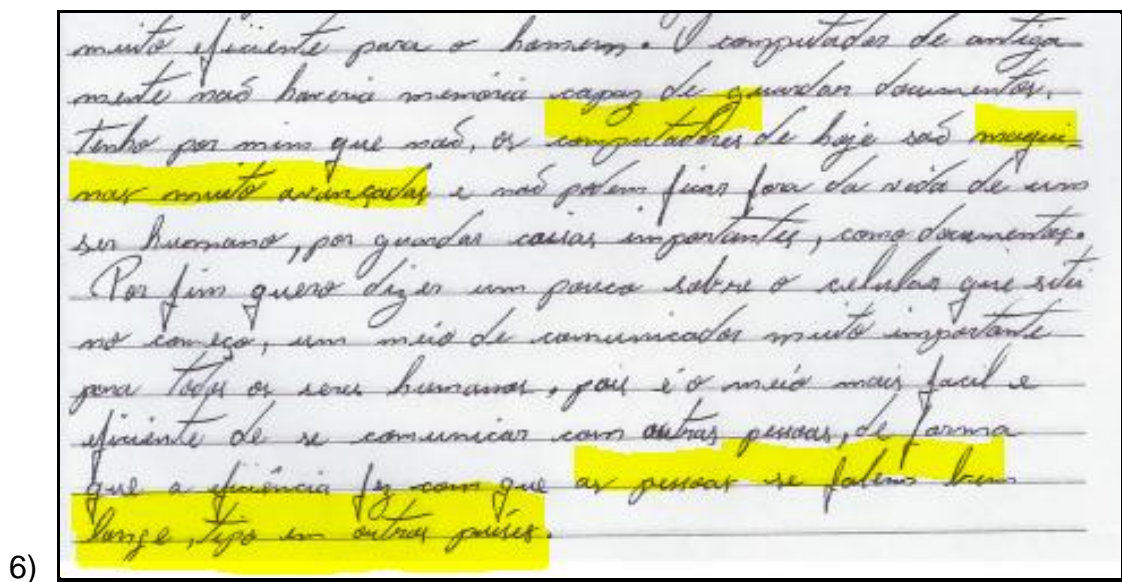 muito eficiente para o homem. O computador de antiga
mente naõ haveria memória capaz de guardar documentos,
tenho por mim que naõ, os computadores de hoje saõ maqui-
nas muito avançadas e naõ podem ficar fora da vida de um
ser humano, por guardar coisas importantes, como documentos.
Por fim quero dizer um pouco sobre o celular que siti
no começo, um meio de comunicador muito importante
para todos os seres humanos, pois é o meio mais facil e
eficiente de se comunicar com outras pessoas, de forma
que a eficiência fez com que as pessoas se falem bem
longe, tipo em outros países.
6)